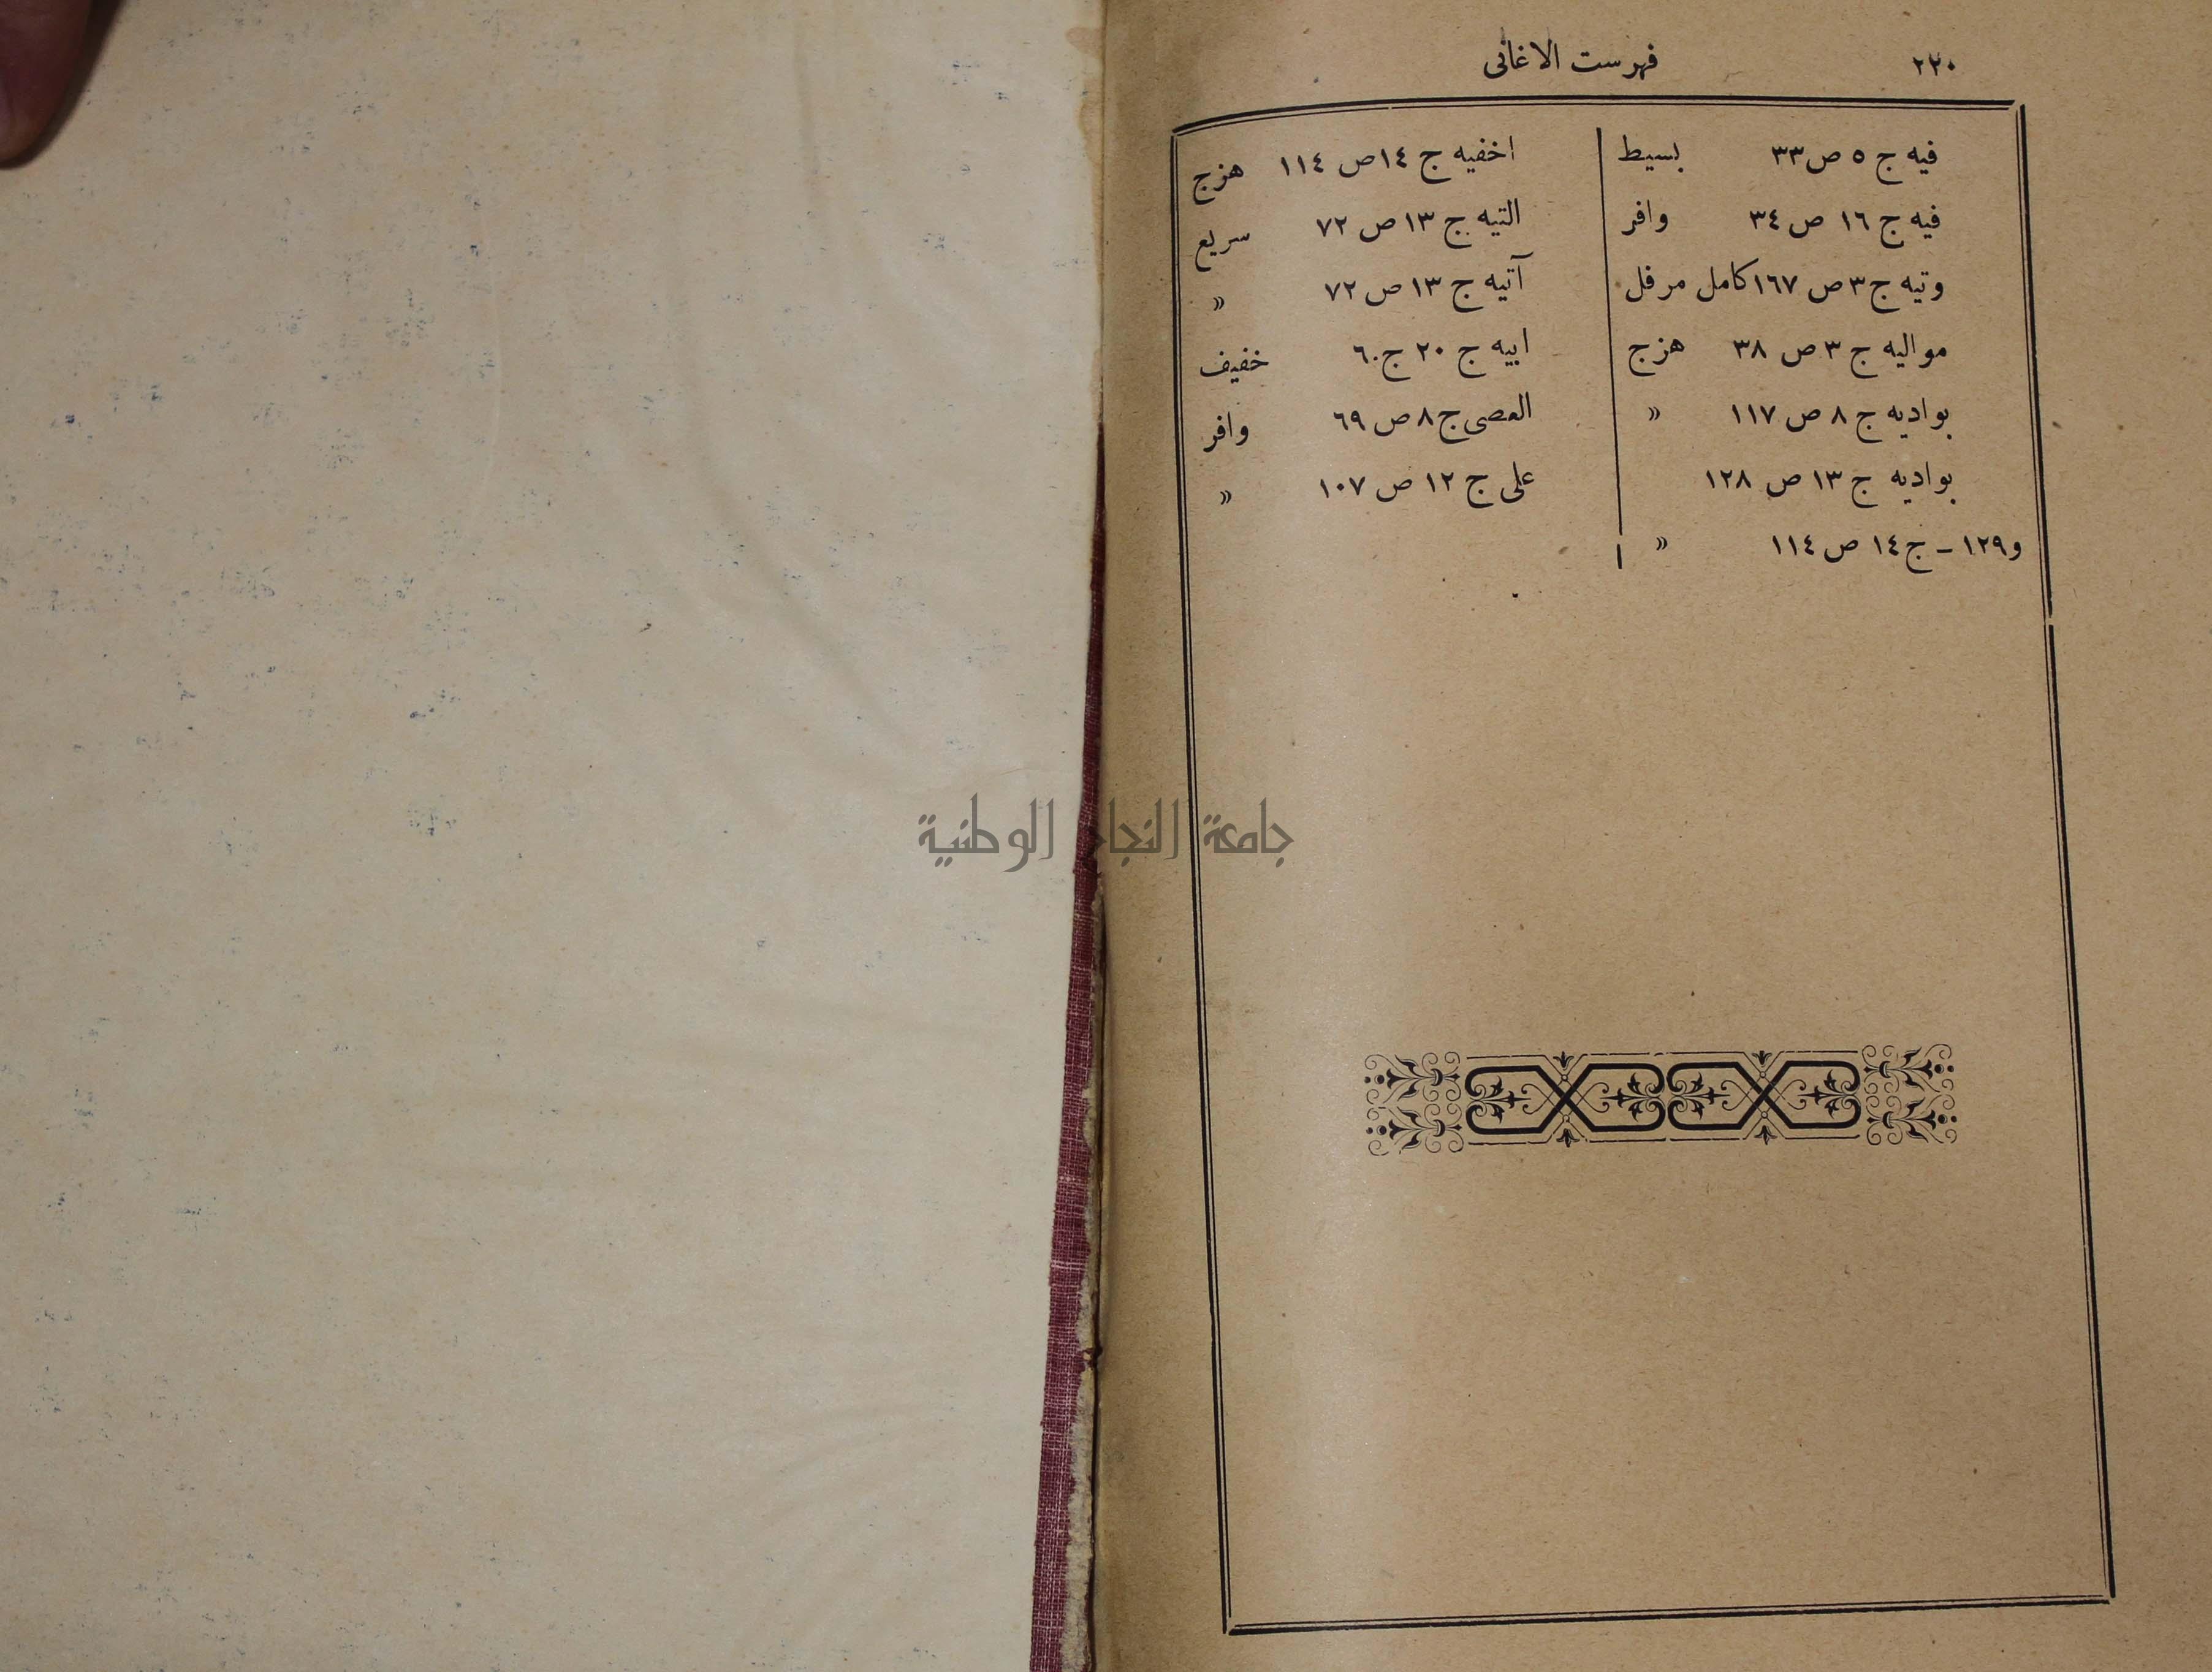 ٢٢٠
فهرست الاغانى
فيه ج ٥ ص ٣٣ بسيط
فيه ج ١٦ ص ٣٤ وافر
وتيه ج ٣ ص ١٦٧ كامل مرفل
مواليه ج ٣ ص ٣٨ هزج
بواديه ج ٨ ص ١١٧ »
بواديه ج ١٣ ص ١٢٨
و١٢٩ - ج ١٤ ص ١١٤ »
اخفيه ج ١٤ ص ١١٤ هزج
التيه ج ١٣ ص ٧٢ سريع
آتيه ج ١٣ ص ٧٢ »
ابيه ج ٢٠ ج ٦٠ خفيف
العصى ج ٨ ص ٦٩ وافر
على ج ١٢ ص ١٠٧ »
جامعة النجاح الوطنية